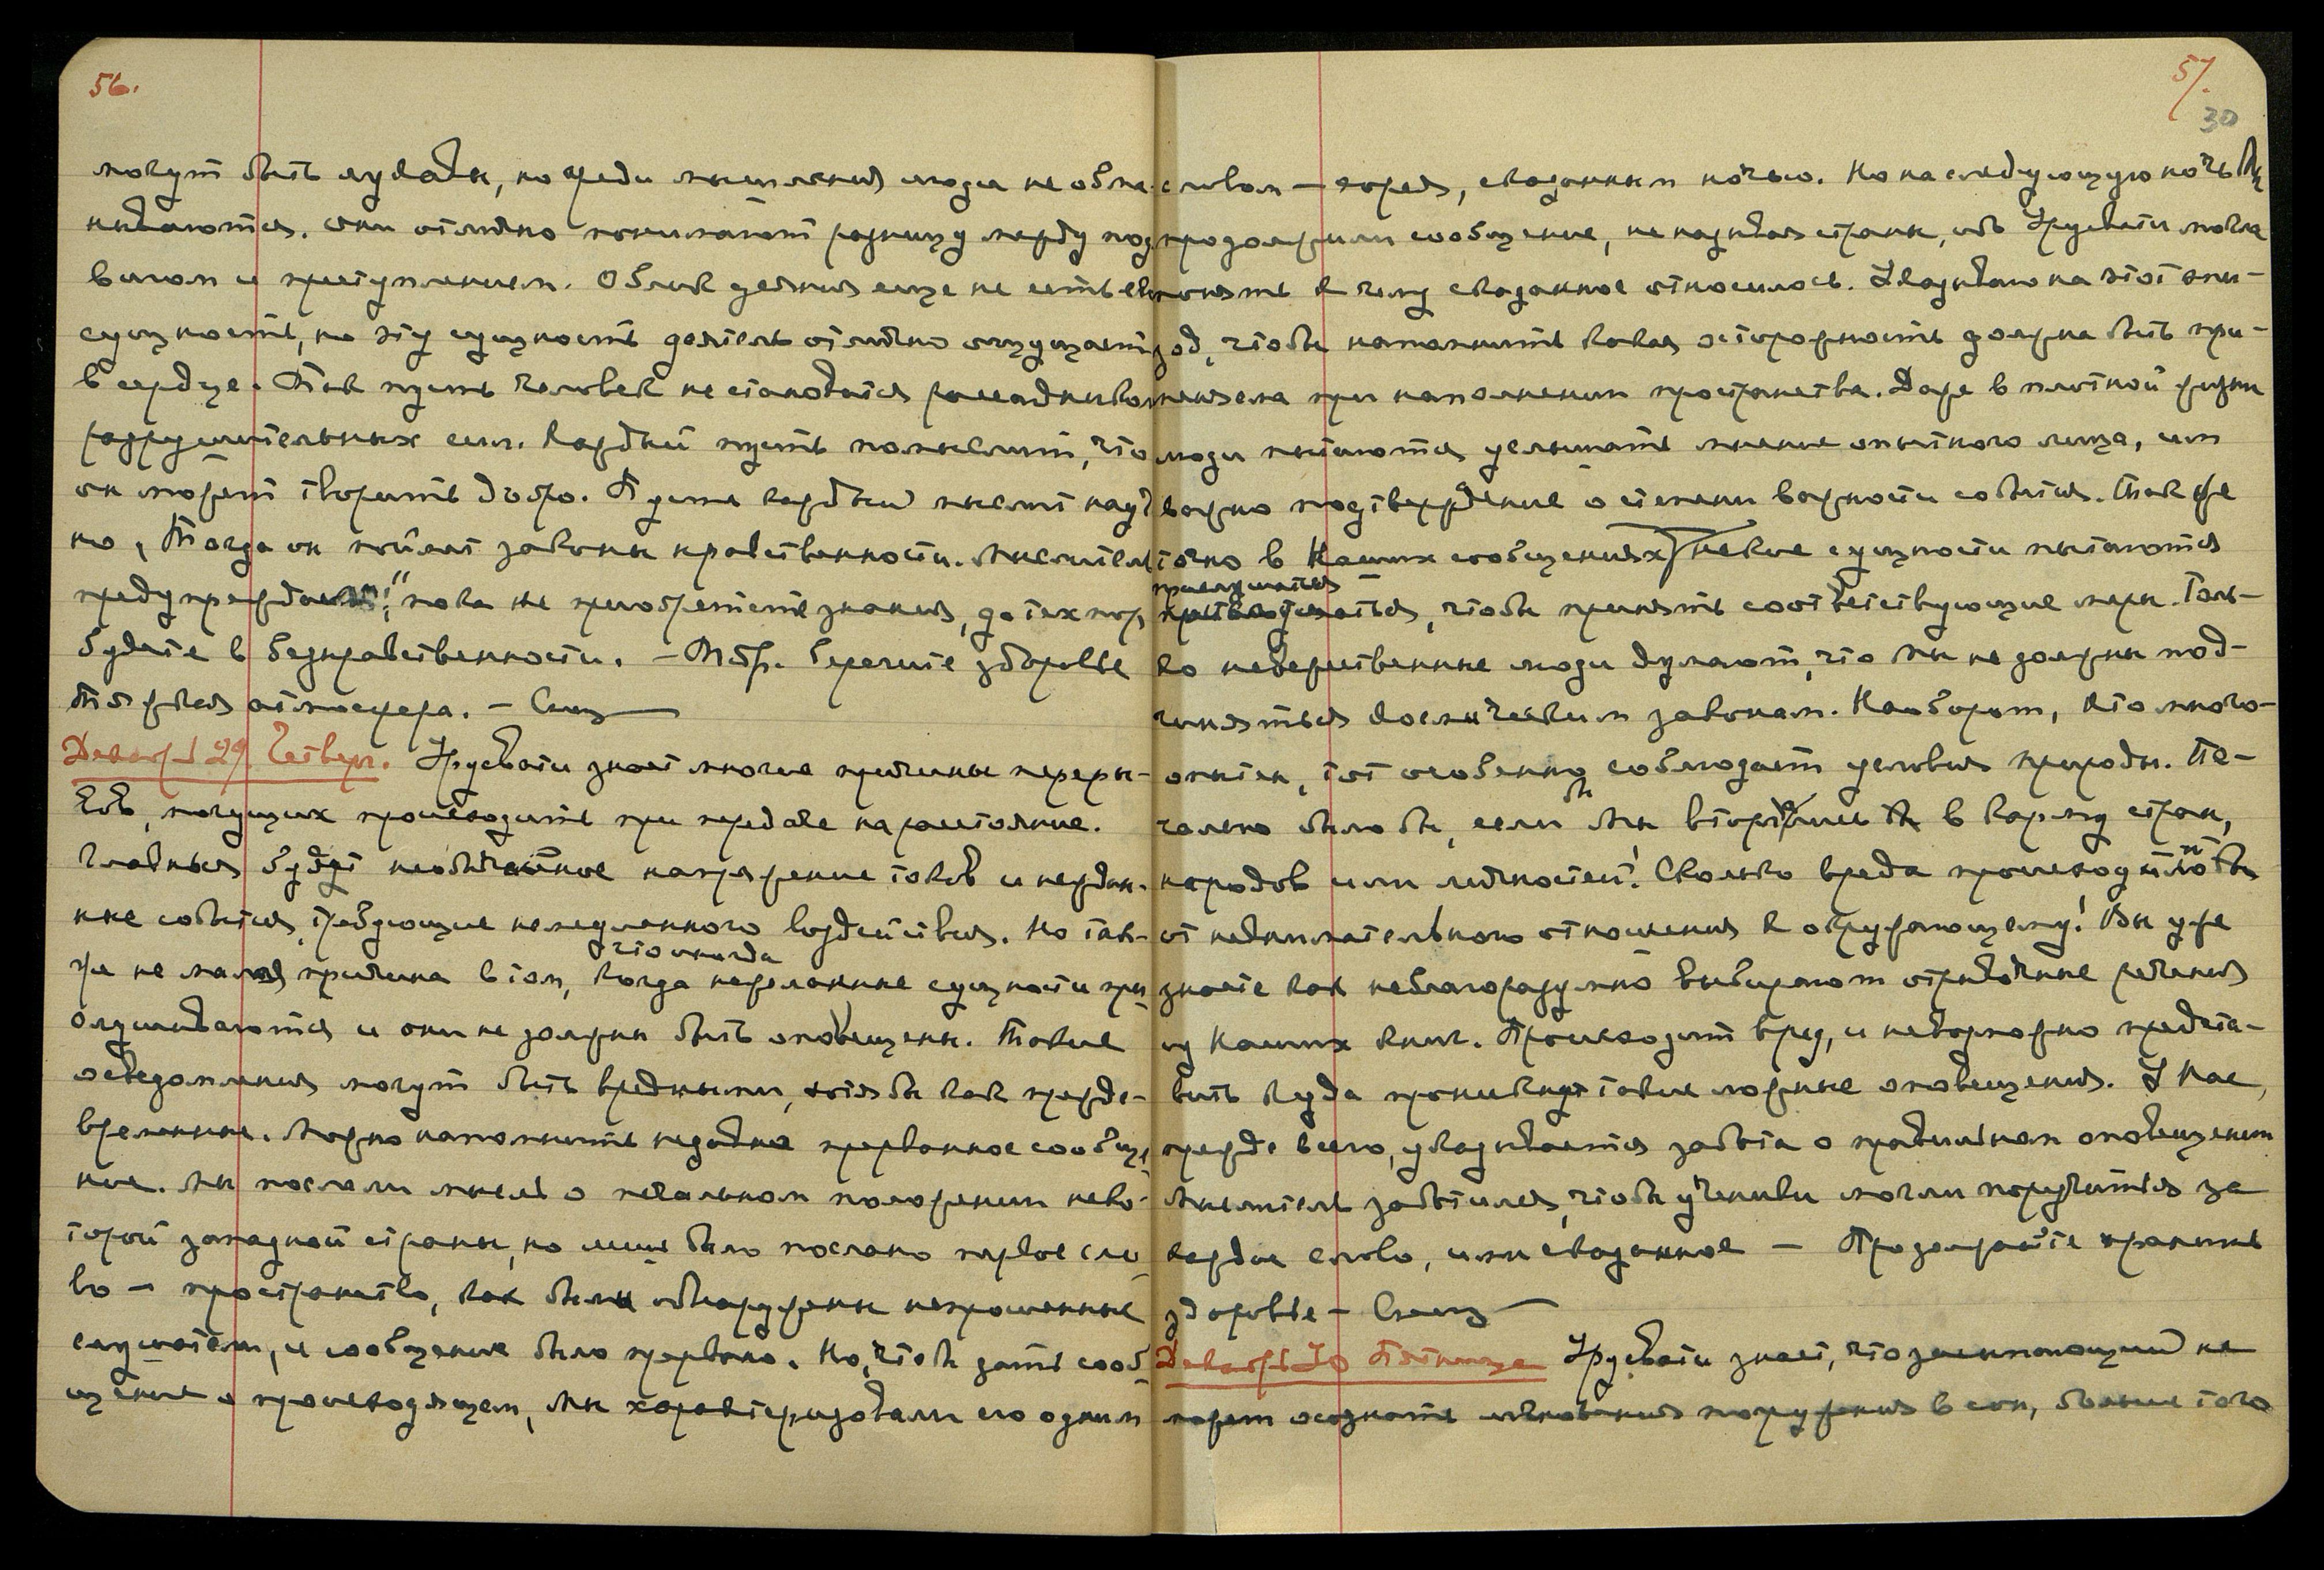 56.
могут быть лукавы, но среди мышления люди не обма-
нываются. Они отлично понимают разницу между под-
вигом и преступлением. Облик деяния еще не есть его
сущность, но эту сущность деятель отлично ощущает
в сердце. Так пусть человек не становится рассадником
разрушительных сил. Каждый пусть помыслит, что
он может творить добро. Пусть каждый мыслит науч
но, Тогда он поймет законы нравственности. Мыслитель
предупреждал: „пока не приобретете знания, до тех пор
будете в безнравственности. – Мбр. Берегите здоровье
Тяжкая атмосфера. – Спеш
Декабрь 29 Четверг. Урусвати знает многие причины переры-
вов, могущих происходить при передаче на расстояние.
Главных будет необычайное напряжение токов и неждан-
ные события, требующие немедленного воздействия. Но так-
же не малая причина в том, что иногда нежеланные сущности при
слушиваются и они не должны быть оповещены. Такие
осведомления могут быть вредными, хотя бы как прежде-
временные. Можно напомнить недавнее прерванное сообще-
ние. Мы послали мысль о печальном положении неко-
торой западной страны, но лишь было послано первое сло-
во – пространство, как были обнаружены непрошенные
слушатели, и сообщение было прервано. Но, чтобы дать сооб-
щение о происходящем, Мы характеризовали его одним
57.
30
словом – горед, сказанным ночью. Но на следующую ночь Мы
продолжили сообщение, не называя стран, ибо Урусвати могла
понять к чему сказанное относилось. Указываю на этот эпи-
зод, чтобы напомнить какая осторожность должна быть при-
менена при наполнении пространства. Даже в плотной жизни
люди пытаются услышать мнение опытного лица, им
важно подтверждение о степени важности события. Так же
точно в Наших сообщениях некие сущности пытаются
прислушаться, чтобы принять соответствующие меры. Толь-
ко невежественные люди думают, что Мы не должны под-
чиняться космическим законам. Наоборот, кто много-
опытен, тот особенно соблюдает условия природы. Пе-
чально было бы, если бы Мы вторглись в карму стран,
народов или личностей! Сколько вреда происходит
от невнимательного отношения к окружающему! Вы уже
знаете как неблагоразумно выбирают отрывочные речения
из Наших книг. Происходит вред, и невозможно предста-
вить куда проникнут такие ложные оповещения. У Нас,
прежде всего, указывается забота о правильном оповещении
Мыслитель заботился, чтобы ученики могли поручиться за
каждое слово, ими сказанное – Продолжайте хранить
здоровье – Спеш
Декабрь 30 Пятница Урусвати знает, что засыпающий не
может осознать мгновения погружения в сон, больше того